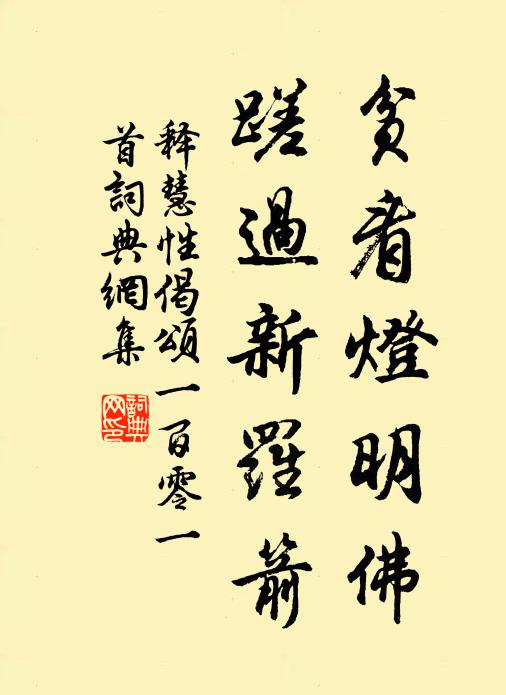 貧看燈明佛
蹉過新羅箭
释慧性偈頌一百零一
首詞典網集
詞典网印